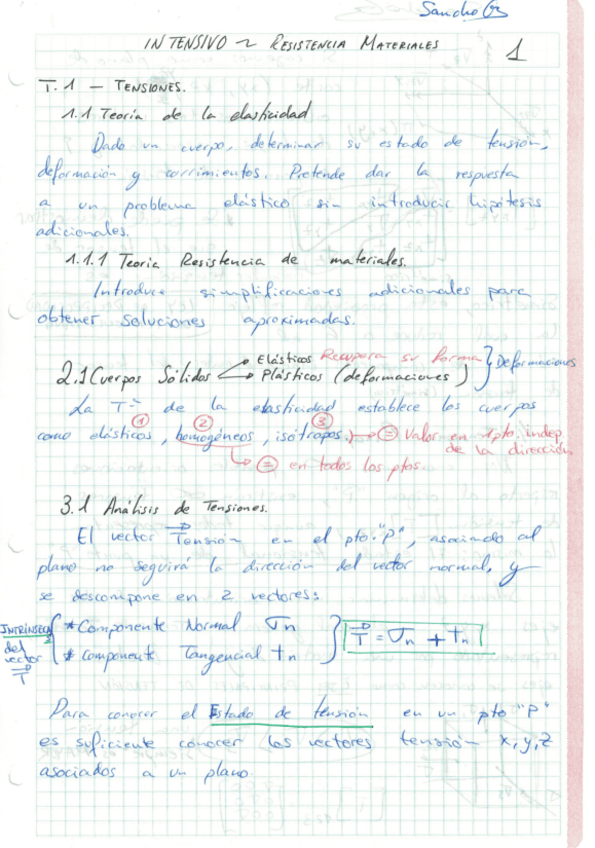 Sancho Gs
INTENSIVO ~ RESISTENCIA MATERIALES
1
T.1 – TENSIONES.
1.1 Teoría de la elasticidad
Dado un cuerpo, determinar su estado de tensión,
deformación y corrimientos. Pretende dar la respuesta
a un problema elástico sin introducir hipótesis
adicionales.
1.1.1 Teoría Resistencia de materiales.
Introduce simplificaciones adicionales para
obtener soluciones aproximadas.
Elásticos Recupera su forma
2.1 Cuerpos Sólidos
Plásticos (deformaciones)
Deformaciones
La Tª de la elasticidad establece los cuerpos
1 2 3
como elásticos, homogéneos, isótropos. → = Valor en 1 pto. indep.
de la dirección
= en todos los ptos.
3.1 Análisis de Tensiones.
El vector Tensión en el pto. "P", asociado al
plano no seguirá la dirección del vector normal, y
se descompone en 2 vectores:
INTRÍNSECA
del
vector
T
* Componente Normal σn
* Componente Tangencial tn
T = σn + tn
Para conocer el Estado de tensión en un pto "P"
es suficiente conocer los vectores tensión x, y, z
asociados a un plano.